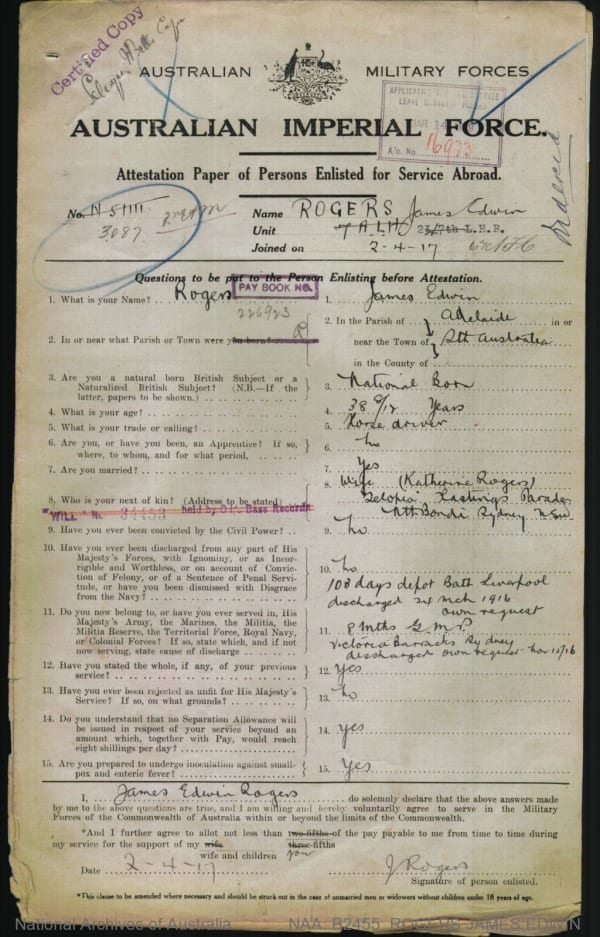 Certified Copy
AUSTRALIAN MILITARY FORCES
AUSTRALIAN IMPERIAL FORCE.
A/c. No. 16933
Attestation Paper of Persons Enlisted for Service Abroad.
No. N51111
3087
Name ROGERS James Edwin
Unit 7 A.L.H. L.H.R.
Joined on 2-4-17
Questions to be put to the Person Enlisting before Attestation.
PAY BOOK No.
226923
1. What is your Name? . . Rogers
1. James Edwin
2. In or near what Parish or Town were you born?
2. In the Parish of Adelaide in or
near the Town of Sth Australia
in the County of
3. Are you a natural born British Subject or a
Naturalized British Subject? (N.B.—If the
latter, papers to be shown.)
3. National Born
4. What is your age?
4. 38 9/12 Years
5. What is your trade or calling?
5. Horse driver
6. Are you, or have you been, an Apprentice? If so,
where, to whom, and for what period,
6. no
7. Are you married?
7. Yes
8. Who is your next of kin? (Address to be stated)
8. Wife (Katherine Rogers)
Hastings Parade
Nth Bondi Sydney NSW
"WILL" No. 34453 held by Base Records
9. Have you ever been convicted by the Civil Power?
9. no
10. Have you ever been discharged from any part of His
Majesty's Forces, with Ignominy, or as Incor-
rigible and Worthless, or on account of Convic-
tion of Felony, or of a Sentence of Penal Servi-
tude, or have you been dismissed with Disgrace
from the Navy?
10. no.
11. Do you now belong to, or have you ever served in, His
Majesty's Army, the Marines, the Militia, the
Militia Reserve, the Territorial Force, Royal Navy,
or Colonial Forces? If so, state which, and if not
now serving, state cause of discharge
103 days depot Batt Liverpool
discharged Mch 1916
own request
11. 8 mths G.M.P.
Victoria Barracks Sydney
discharged own request Nov 16
12. Have you stated the whole, if any, of your previous
service?
12. Yes
13. Have you ever been rejected as unfit for His Majesty's
Service? If so, on what grounds?
13. no
14. Do you understand that no Separation Allowance will
be issued in respect of your service beyond an
amount which, together with Pay, would reach
eight shillings per day?
14. yes
15. Are you prepared to undergo inoculation against small-
pox and enteric fever?
15. Yes
I, James Edwin Rogers do solemnly declare that the above answers made
by me to the above questions are true, and I am willing and hereby voluntarily agree to serve in the Military
Forces of the Commonwealth of Australia within or beyond the limits of the Commonwealth.
*And I further agree to allot not less than two-fifths of the pay payable to me from time to time during
three-fifths
my service for the support of my wife
wife and children
Date 2-4-17
J Rogers
Signature of person enlisted.
*This clause to be amended where necessary and should be struck out in the case of unmarried men or widowers without children under 18 years of age.
National Archives of Australia NAA: B2455, ROGERS JAMES EDWIN